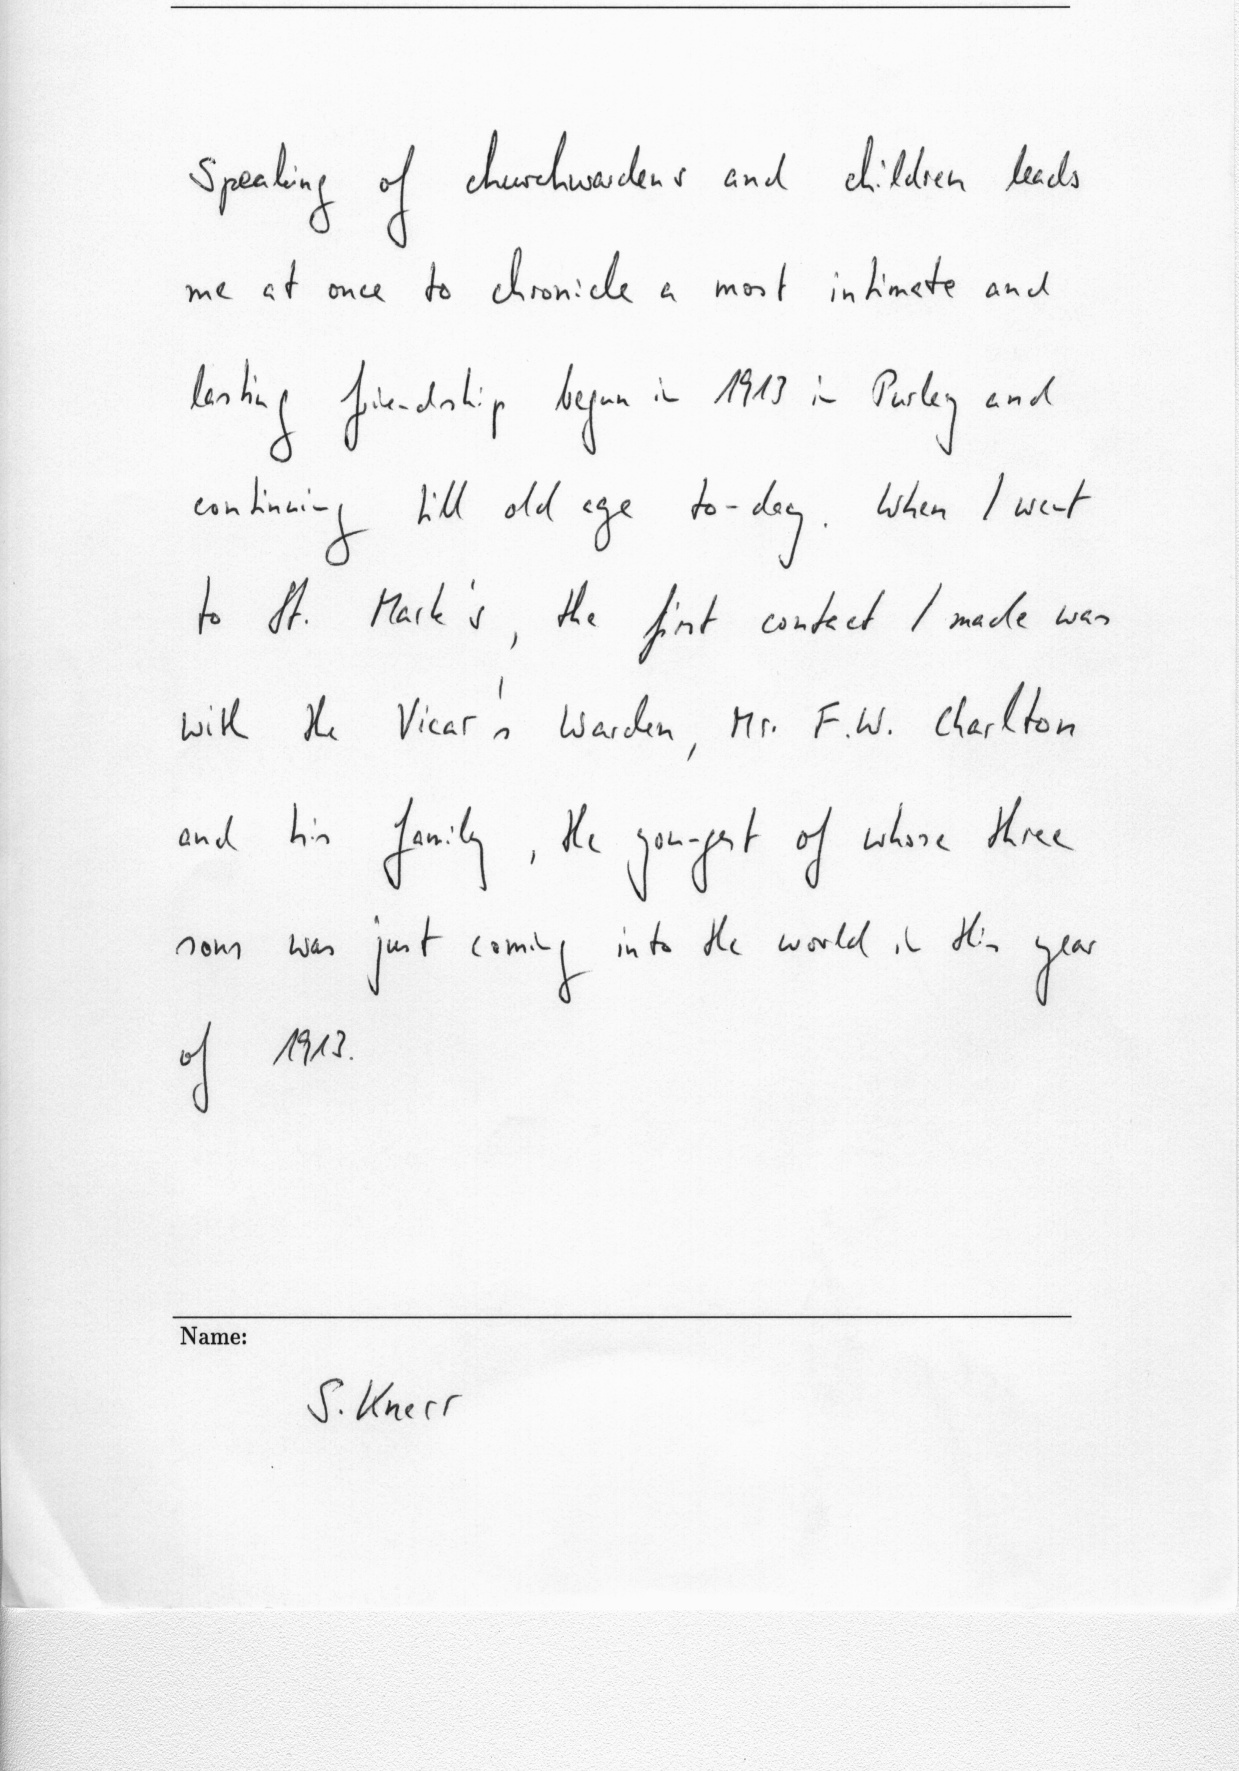 Speaking of churchwardens and children leads
me at once to chronicle a most intimate and
lasting friendship begun in 1913 in Purley and
continuing till old age to-day. When I went
to St. Mark's, the first contact I made was
with the Vicar's Warden, Mr. F.W. Charlton
and his family, the youngest of whose three
sons was just coming into the world in this year
of 1913.
Name:
S. Knerr